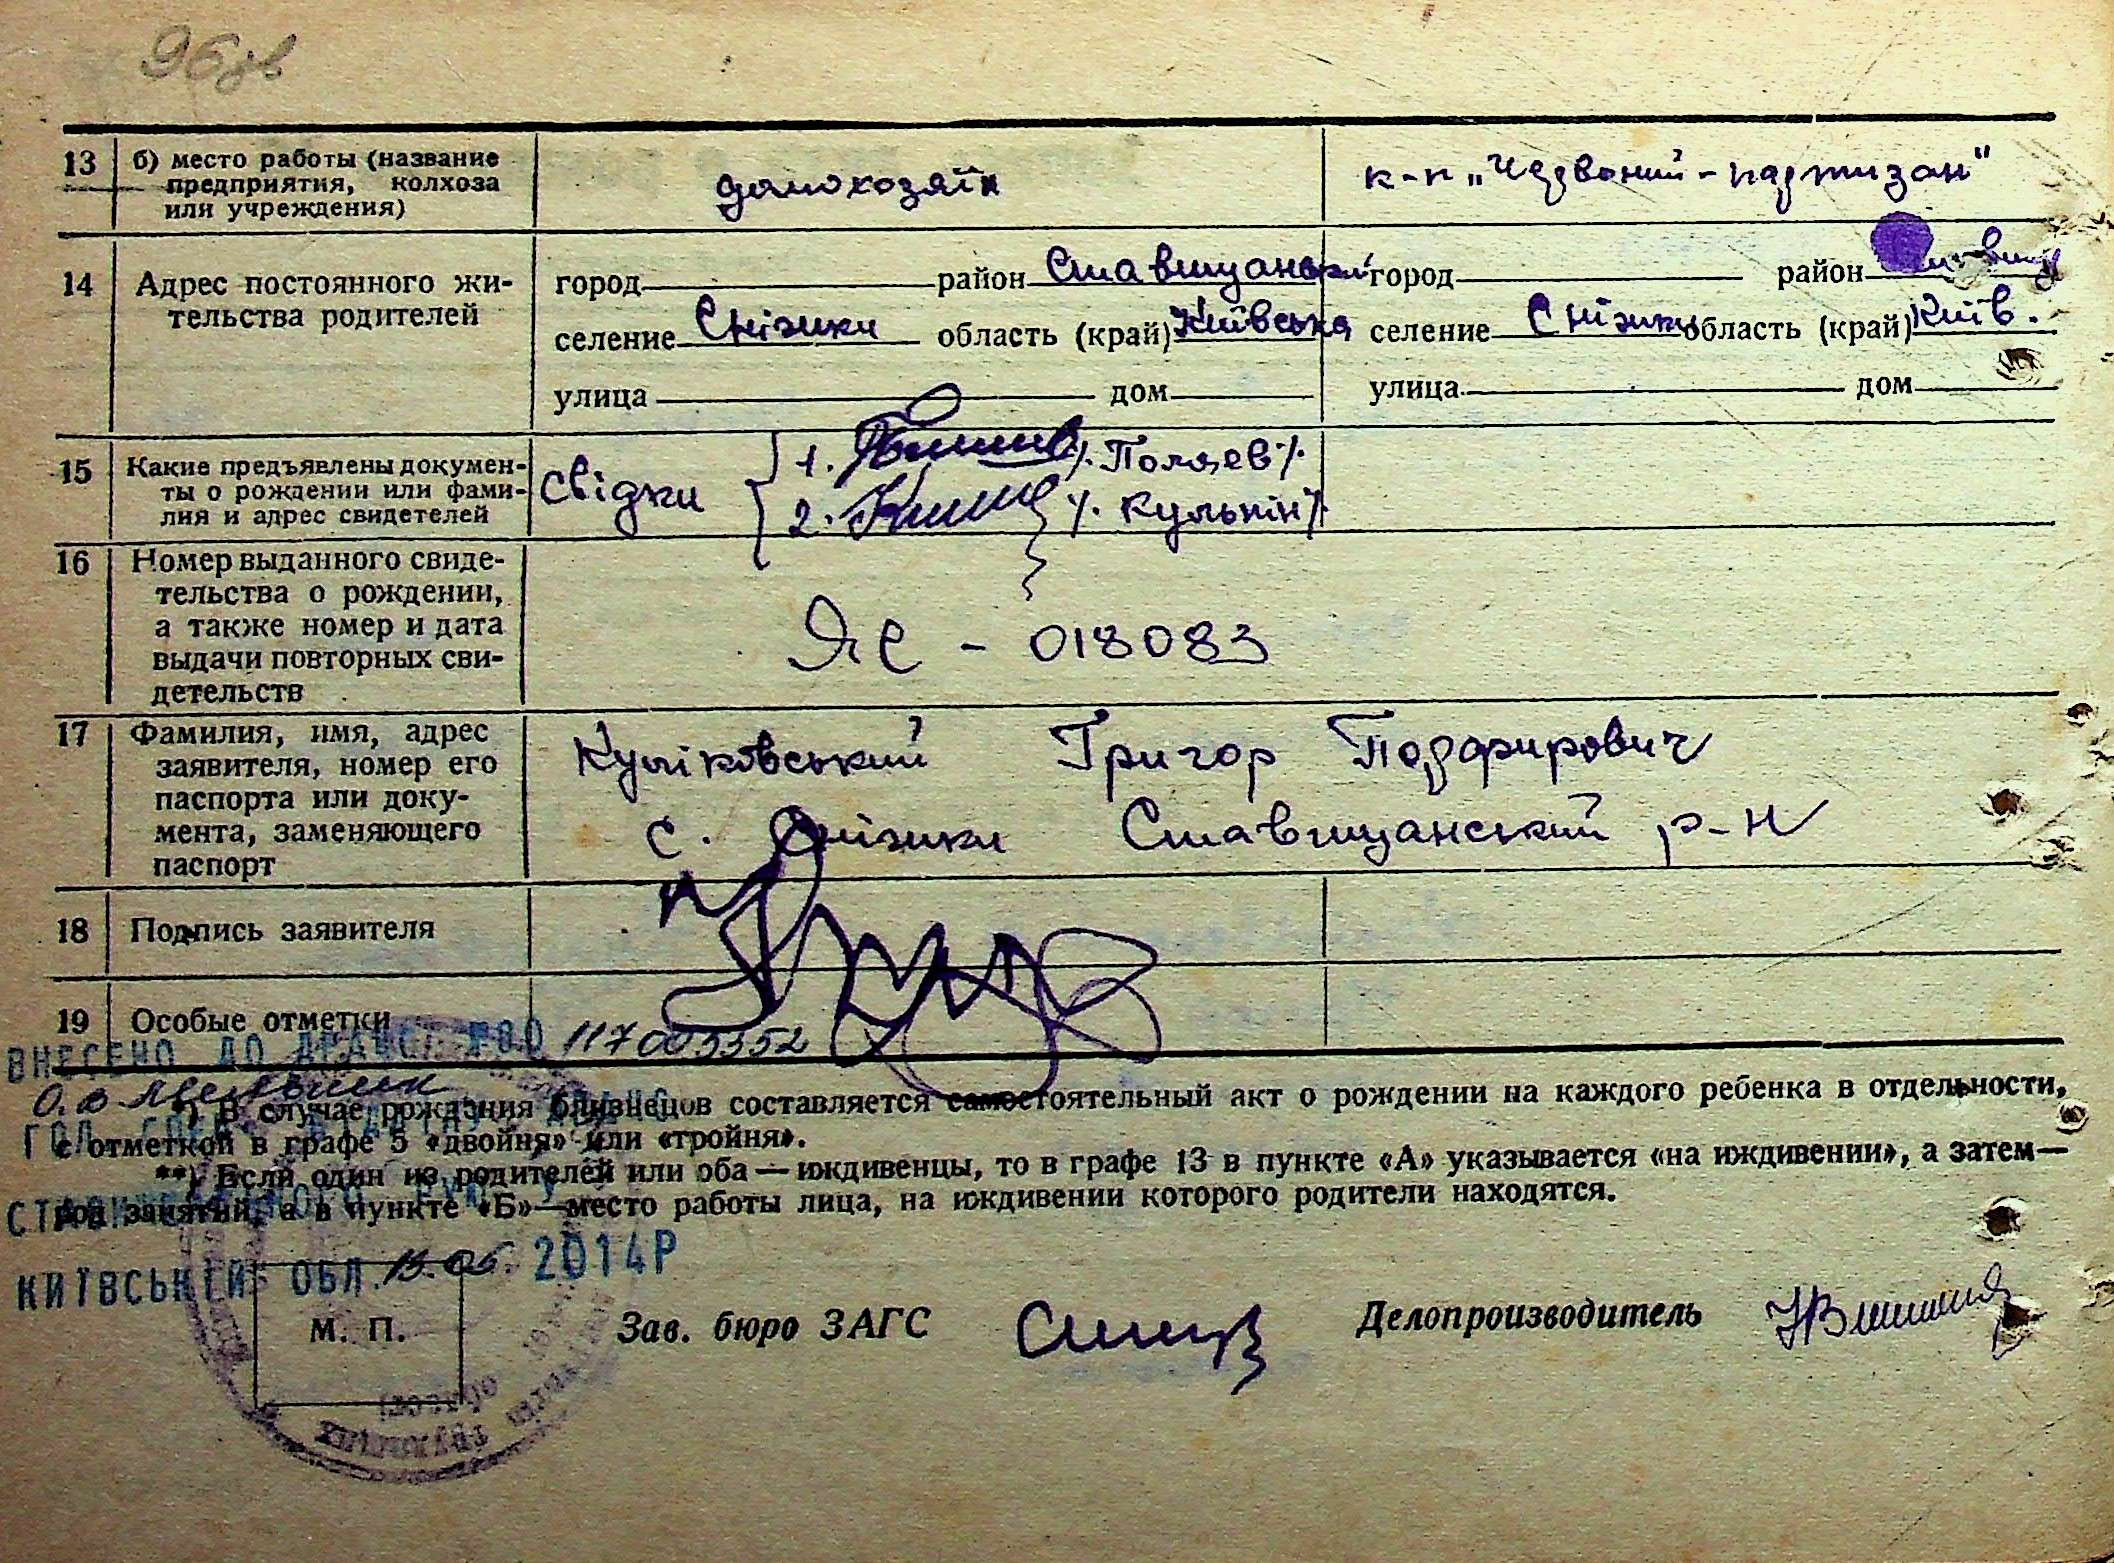 96зв
13 б) место работы (название предприятия, колхоза или учреждения) домохозяїн к-п „Червоний-партизан"
14 Адрес постоянного жи-
тельства родителей
город район Ставищанськ город район
селение Снізики область (край) Київська селение Снізики область (край) Київ.
улица дом улица дом
15 Какие предъявлены докумен-
ты о рождении или фами-
лия и адрес свидетелей
Свідки
1. /.Поляєв/.
2. /.Кульпін/.
16 Номер выданного свиде-
тельства о рождении,
а также номер и дата
выдачи повторных сви-
детельств
ЯС - 018083
17 Фамилия, имя, адрес
заявителя, номер его
паспорта или доку-
мента, заменяющего
паспорт
Куліковський Григор Порфирович
с. Снізики Ставищанський р-н
18 Подпись заявителя
19 Особые отметки
ВНЕСЕНО ДО ДРАЦСГ №00 117005352
*) В случае рождения близнецов составляется самостоятельный акт о рождении на каждого ребенка в отдельности,
с отметкой в графе 5 «двойня» или «тройня».
**) Если один из родителей или оба — иждивенцы, то в графе 13 в пункте «А» указывается «на иждивении», а затем —
род занятий, а в пункте «Б» — место работы лица, на иждивении которого родители находятся.
КИЇВСЬКІЙ ОБЛ. 13.06. 2014Р
М. П.
Зав. бюро ЗАГС Делопроизводитель